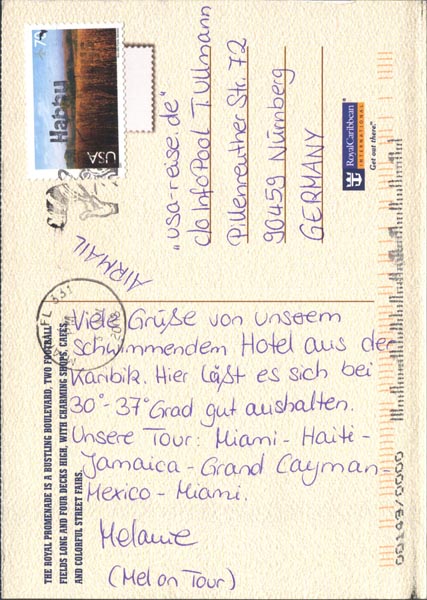 USA
Happy
FL 331
AIRMAIL
"usa-reise.de"
c/o InfoPool T. Ullmann
Pillenreuther Str. 72
90459 Nürnberg
GERMANY
RoyalCaribbean®
INTERNATIONAL
Get out there.
Viele Grüße von unserem
schwimmendem Hotel aus der
Karibik. Hier läßt es sich bei
30°-37°Grad gut aushalten.
Unsere Tour: Miami - Haiti -
Jamaica - Grand Cayman -
Mexico - Miami.
Melanie
(Mel on Tour)
THE ROYAL PROMENADE IS A BUSTLING BOULEVARD, TWO FOOTBALL
FIELDS LONG AND FOUR DECKS HIGH, WITH CHARMING SHOPS, CAFÉS,
AND COLORFUL STREET FAIRS.